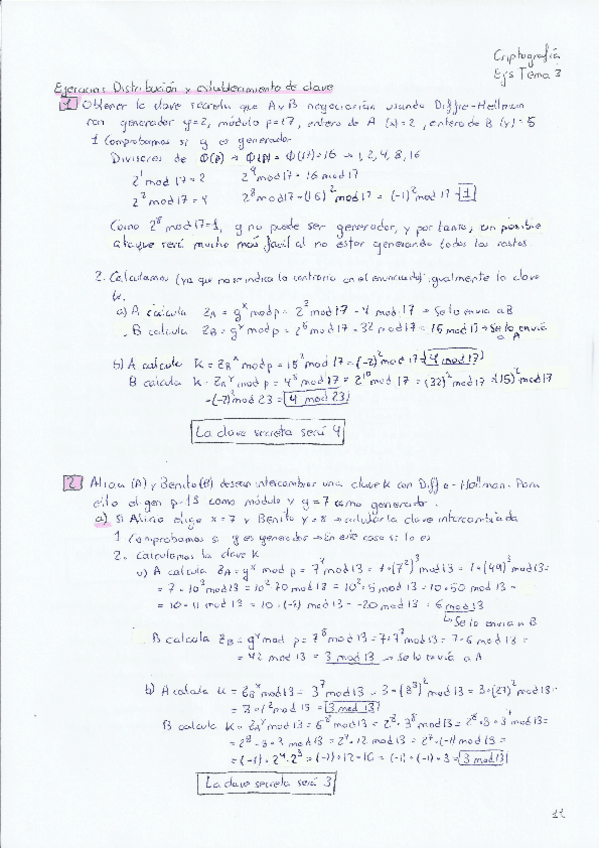 Criptografía
Ejs Tema 3
Ejercicios Distribución y establecimiento de clave
1 Obtener la clave secreta que A y B negociarían usando Diffie-Hellman
con generador g=2, módulo p=17, entero de A (x)=2, entero de B (y)=5
1 Comprobamos si g es generador
Divisores de Φ(p) = Φ(17)=16 → 1, 2, 4, 8, 16
2¹ mod 17 = 2 2⁴ mod 17 = 16 mod 17
2² mod 17 = 4 2⁸ mod 17 = (16)² mod 17 = (-1)² mod 17 = 1
Como 2⁸ mod 17=1, g no puede ser generador, y por tanto, un posible
ataque será mucho más fácil al no estar generando todos los restos
2. Calculamos (ya que no se indica lo contrario en el enunciado) igualmente la clave
K.
a) A calcula Z_A = g^x mod p = 2² mod 17 = 4 mod 17 → Se lo envía a B
B calcula Z_B = g^y mod p = 2⁵ mod 17 = 32 mod 17 = 15 mod 17 → Se lo envía
a A
b) A calcula K = Z_B^x mod p = 15² mod 17 = (-2)² mod 17 = 4 mod 17
B calcula K = Z_A^y mod p = 4⁵ mod 17 = 2¹⁰ mod 17 = (32)² mod 17 = (15)² mod 17
= (-2)² mod 23 = 4 mod 23
La clave secreta será 4
2 Alicia (A) y Benito (B) desean intercambiar una clave K con Diffie-Hellman. Para
ello eligen p=13 como módulo y g=7 como generador.
a) Si Alicia elige x=7 y Benito y=8 → calcular la clave intercambiada
1 Comprobamos si g es generador → En este caso sí lo es
2. Calculamos la clave K
a) A calcula Z_A = g^x mod p = 7⁷ mod 13 = 7·(7²)³ mod 13 = 7·(49)³ mod 13 =
= 7·10³ mod 13 = 10²·70 mod 13 = 10²·5 mod 13 = 10·50 mod 13 =
= 10·11 mod 13 = 10·(-2) mod 13 = -20 mod 13 = 6 mod 13
↳ Se lo envía a B
B calcula Z_B = g^y mod p = 7⁸ mod 13 = 7·7⁷ mod 13 = 7·6 mod 13 =
= 42 mod 13 = 3 mod 13 → Se lo envía a A
b) A calcula K = Z_B^x mod 13 = 3⁷ mod 13 = 3·(3³)² mod 13 = 3·(27)² mod 13 =
= 3·1² mod 13 = 3 mod 13
B calcula K = Z_A^y mod 13 = 6⁸ mod 13 = 2⁸·3⁸ mod 13 = 2⁸·3·3⁷ mod 13 =
= 2⁸·3·3 mod 13 = 2⁷·12 mod 13 = 2⁷·(-1) mod 13 =
= (-1)·2⁴·2³ = (-1)·12·16 = (-1)·(-1)·3 = 3 mod 13
La clave secreta será 3